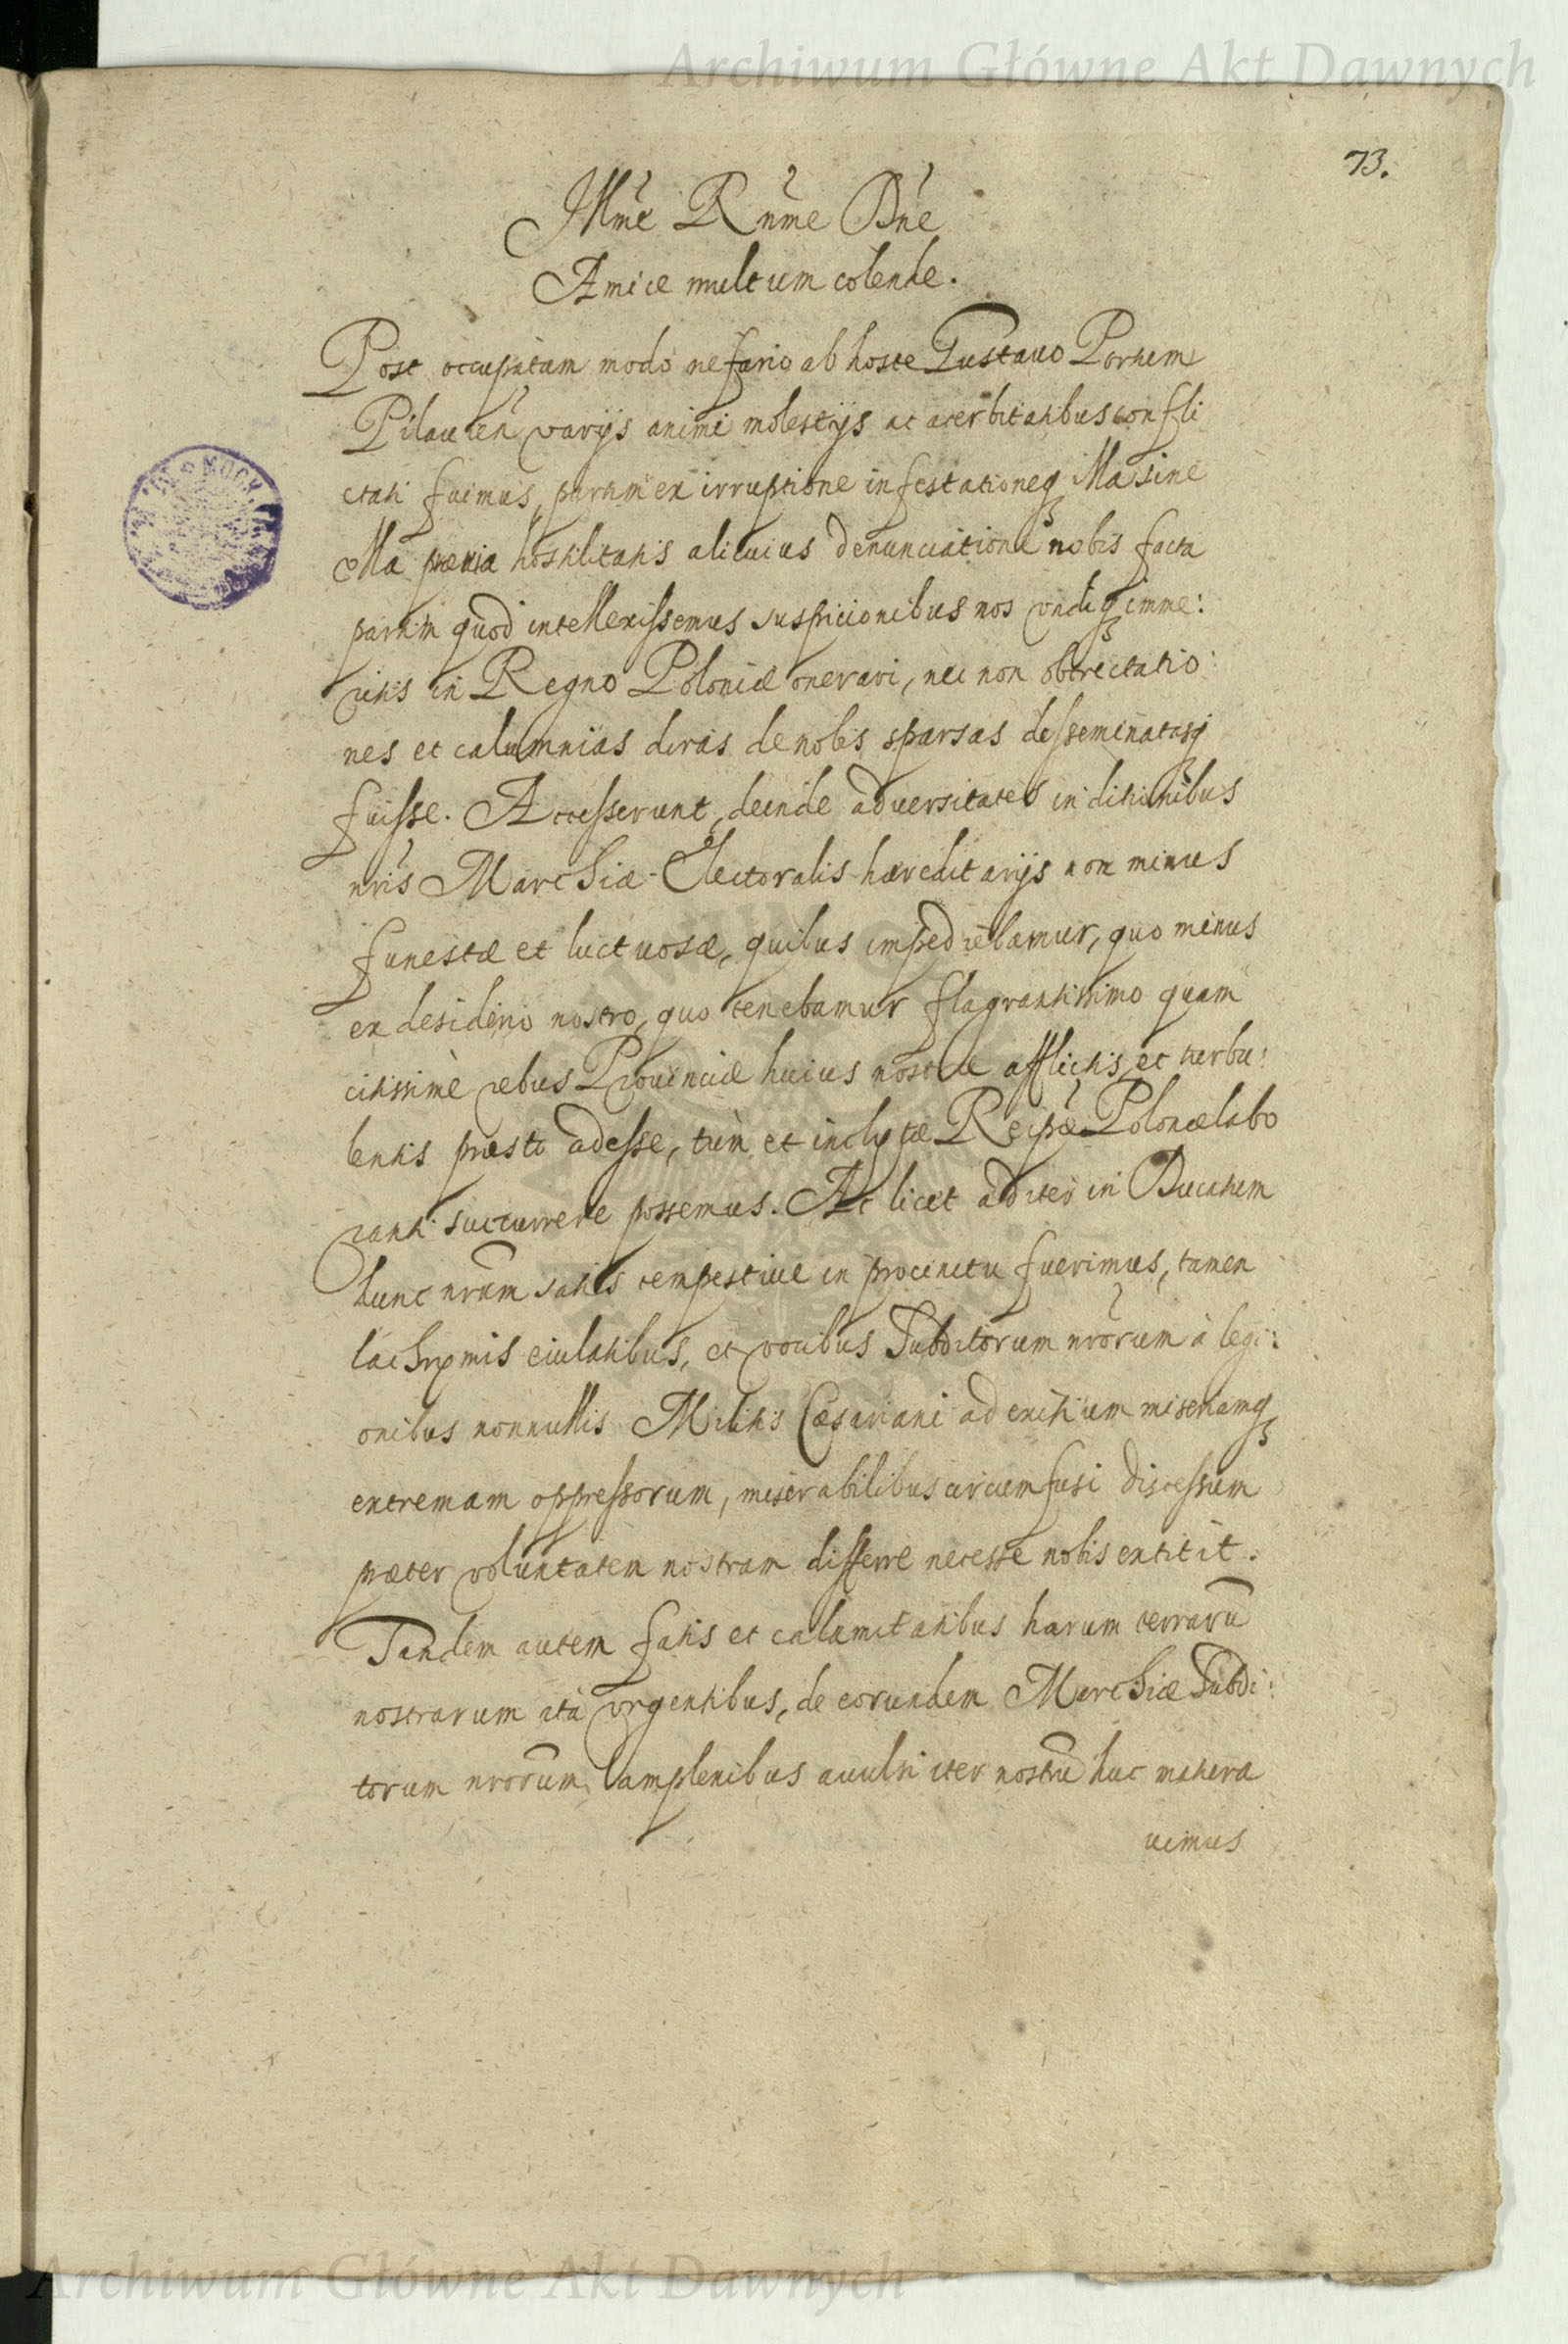 Archiwum Główne Akt Dawnych
73.
Illme Rnme Dne
Amice multum colende.
Post occupatam modo nefario ab hoste Gustavo Portum
Pilauien varijs animi molestijs ac acerbitatibus confli
ctati fuimus, partim ex irruptione infestationeq illa sine
ulla prævia hostilitatis alicuius denunciatione nobis facta
partim quod intellexissemus suspicionibus nos vndiq imme:
ritis in Regno Poloniæ onerari, nec non obtrectatio:
nes et calumnias diras de nobis sparsas disseminatasq
fuisse. Accesserunt, deinde adversitates in ditionibus
nris Marchiæ Electoralis hæreditarijs non minus
funestæ et luctuosæ, quibus impediebamur, quo minus
ex desiderio nostro, quo tenebamur flagrantissimo quam
citissimè rebus Provinciæ huius nostræ afflictis, et turbu:
lentis præsto adesse, tum et inclytæ Reipæ Polonæ labo
ranti succurrere possemus. At licet ad iter in Ducatum
hunc nrum satis tempestiue in procinctu fuerimus, tamen
lachrymis eiulatibus, et vocibus Subditorum nrorum à legi:
onibus nonnullis Militis Cæsariani ad exitium miseriamq
extremam oppressorum, miserabilibus circumfusi discessum
præter voluntatem nostram differre necesse nobis extitit.
Tandem autem fatis et calamitatibus harum terrarū
nostrarum ita vrgentibus, de eorundem Marchiæ Subdi:
torum nrorum amplexibus auulsi iter nostrū huc matura
uimus
Archiwum Główne Akt Dawnych